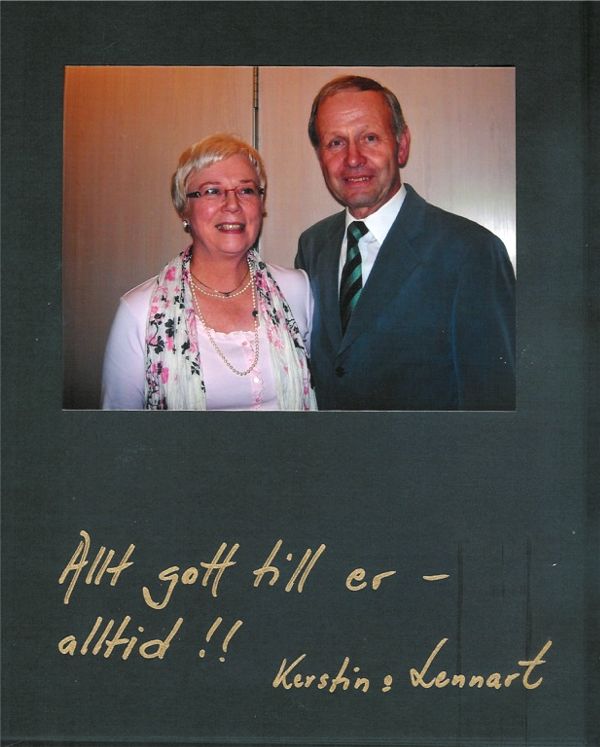 Allt gott till er -
alltid !!
Kerstin & Lennart